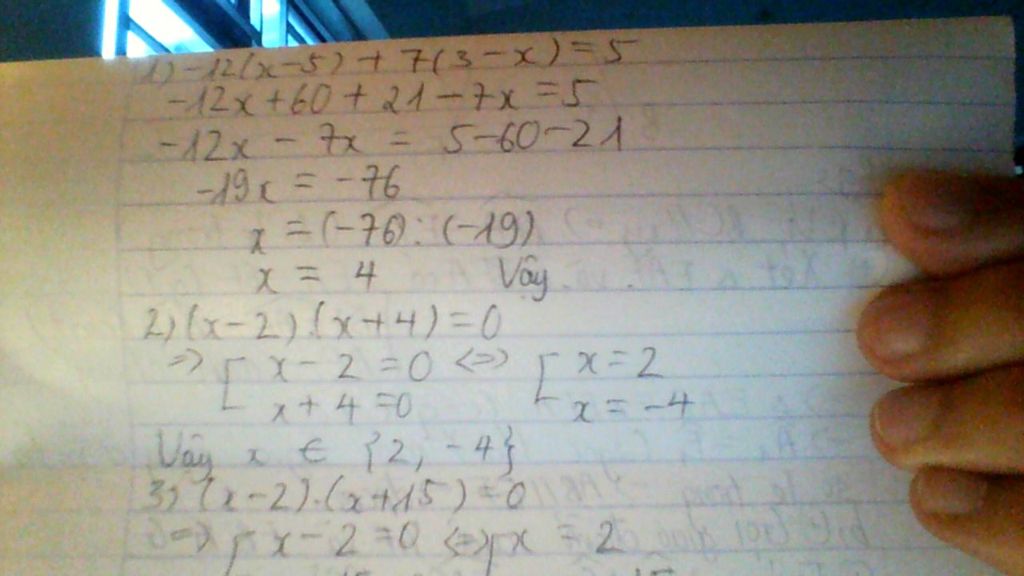 1) -12(x-5) + 7(3-x) = 5
-12x + 60 + 21 - 7x = 5
-12x - 7x = 5-60-21
-19x = -76
x = (-76) : (-19)
x = 4 Vậy
2) (x-2).(x+4) = 0
=> [ x - 2 = 0 <=> [ x = 2
x + 4 = 0 x = -4
Vậy x ∈ {2, -4}
3) (x-2).(x+15) = 0
=> [ x - 2 = 0 <=> [ x = 2